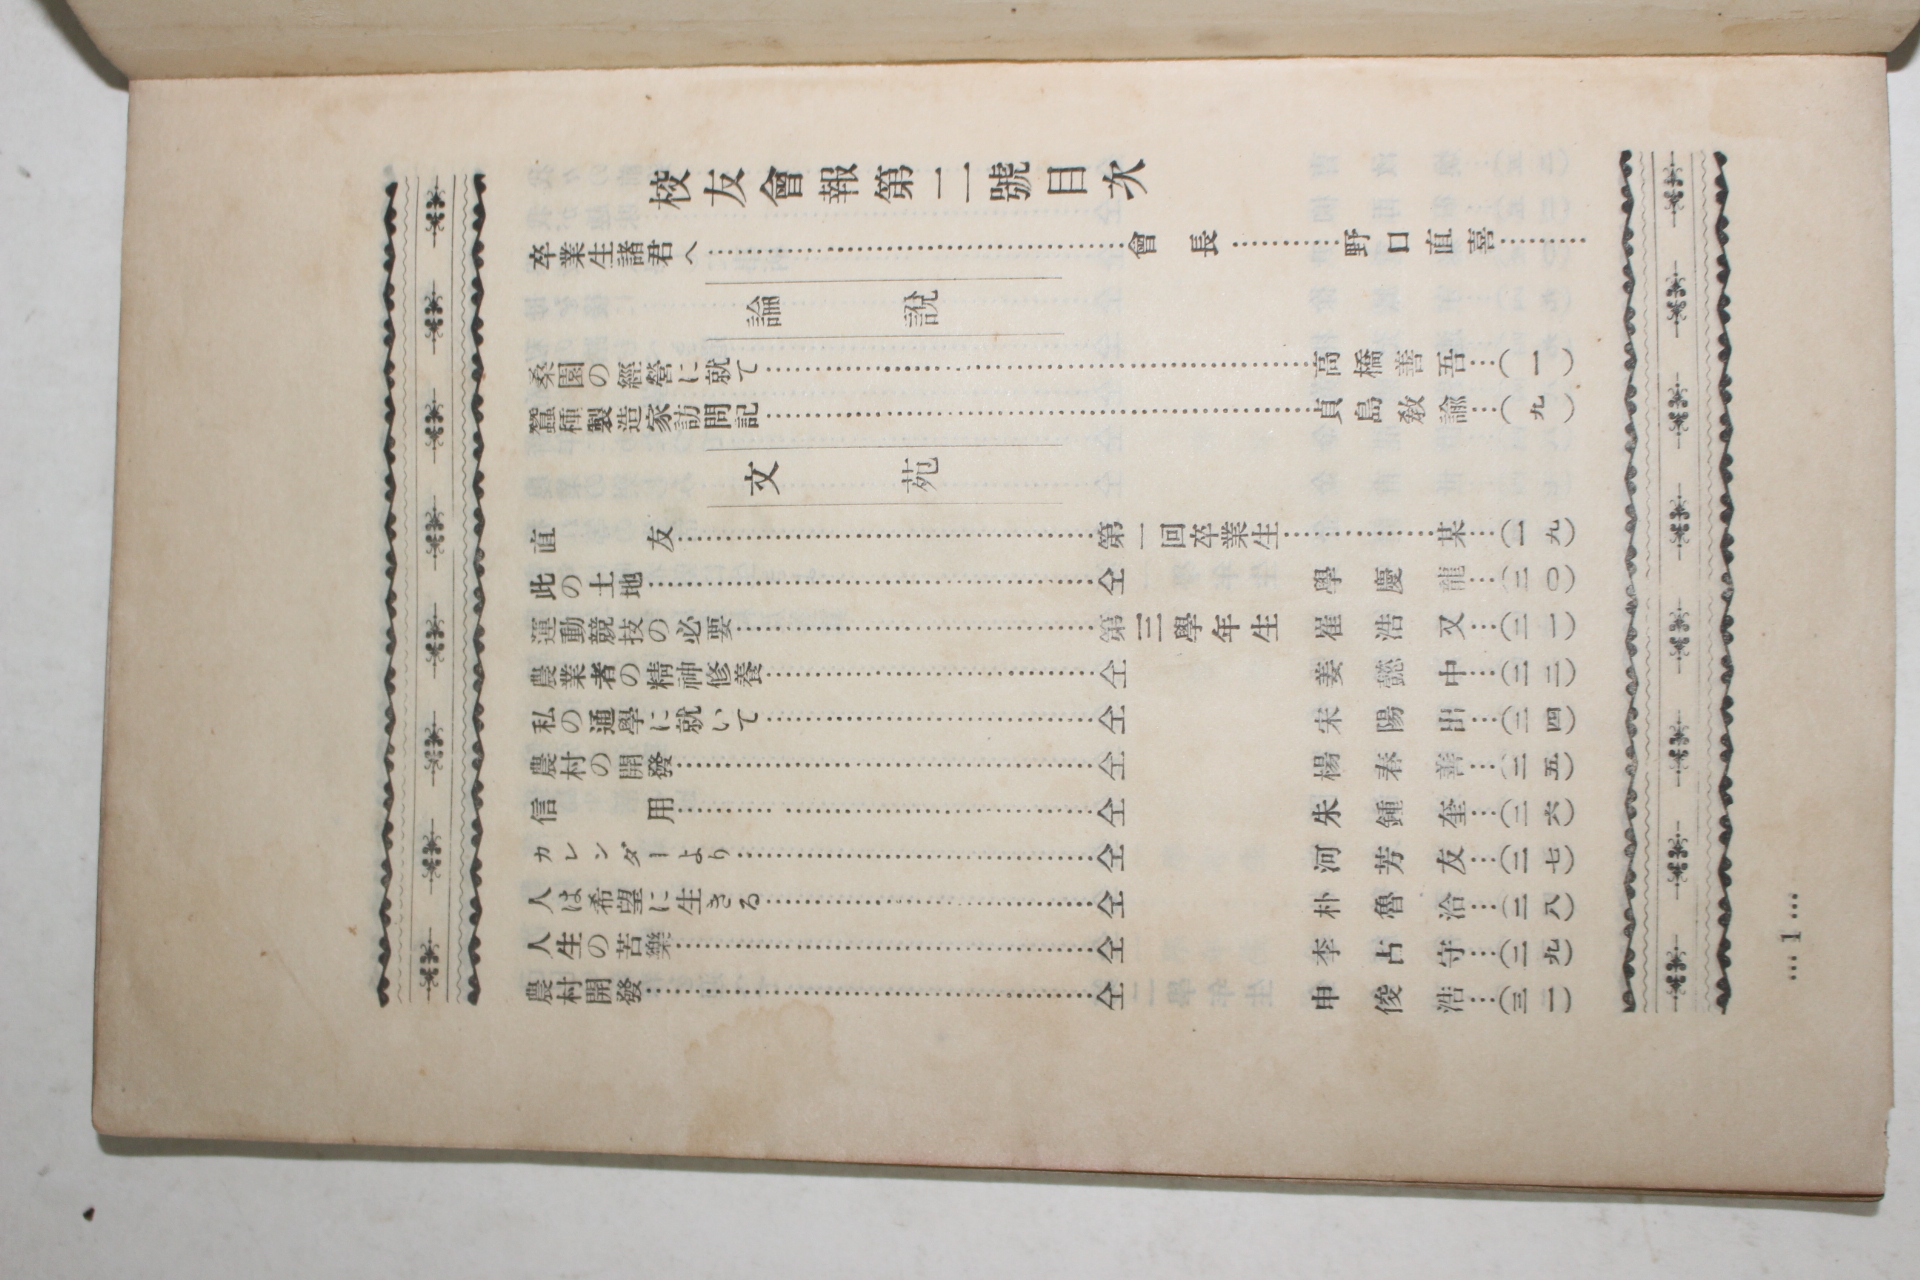 校友會報第二號目次
卒業生諸君へ……………會長………野口直喜………
論說
桑園の經營に就て……………高橋善吾…(一)
蠶種製造家訪問記……………貞島敎諭…(九)
文苑
直友……………第一回卒業生……………某…(一九)
此の土地……………仝 學慶龍…(二〇)
運動競技の必要……………第三學年生 崔浩又…(二一)
農業者の精神修養……………仝 姜懿中…(二二)
私の通學に就いて……………仝 宋陽出…(二四)
農村の開發……………仝 楊春善…(二五)
信用……………仝 朱鍾奎…(二六)
カレンダーより……………仝 河芳友…(二七)
人は希望に生きる……………仝 朴魯洽…(二八)
人生の苦樂……………仝 李占守…(二九)
農村開發……………仝 申俊浩…(三一)
…1…